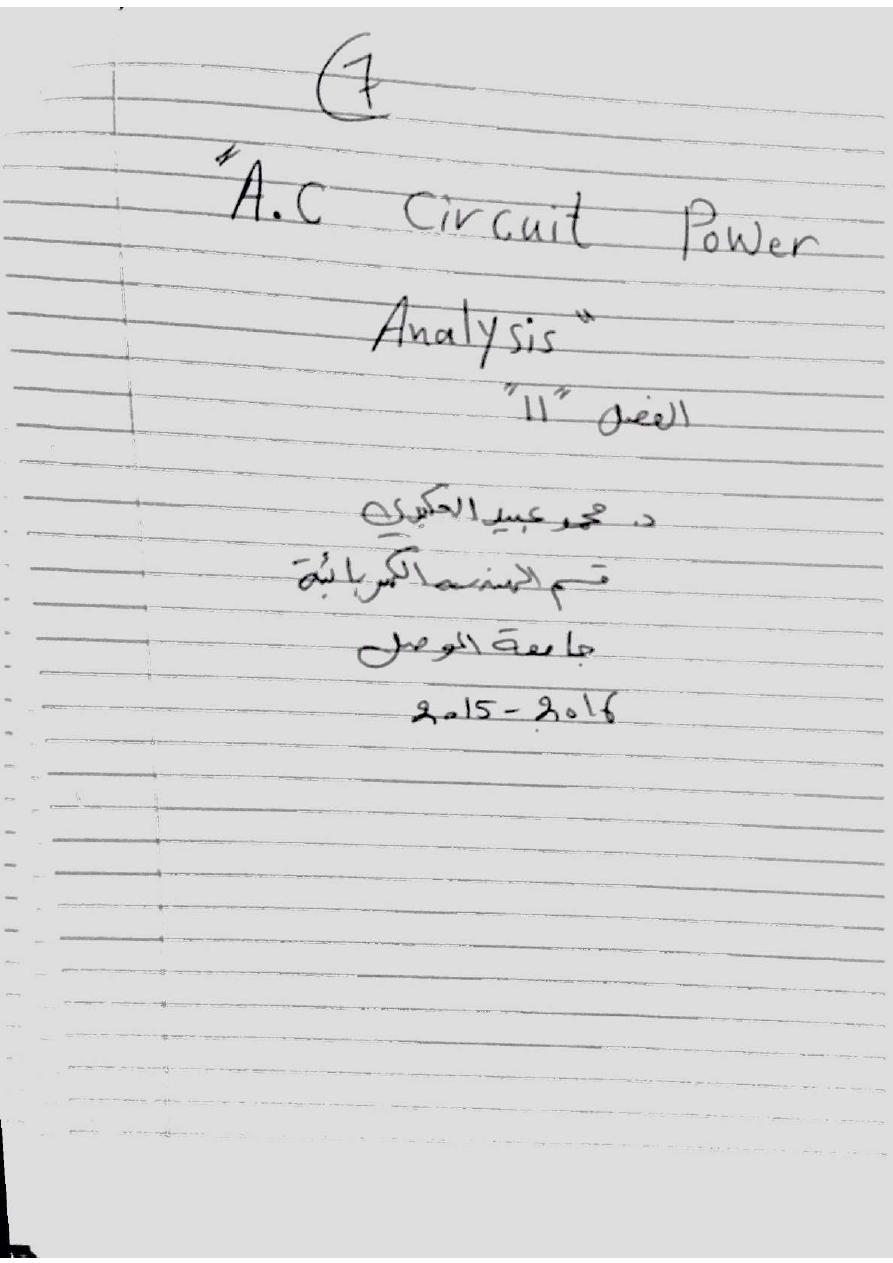 7
"A.C Circuit Power
Analysis"
الفصل "11"
د. محمد عبيد
قسم الهندسة الكهربائية
جامعة الموصل
2015 - 2016